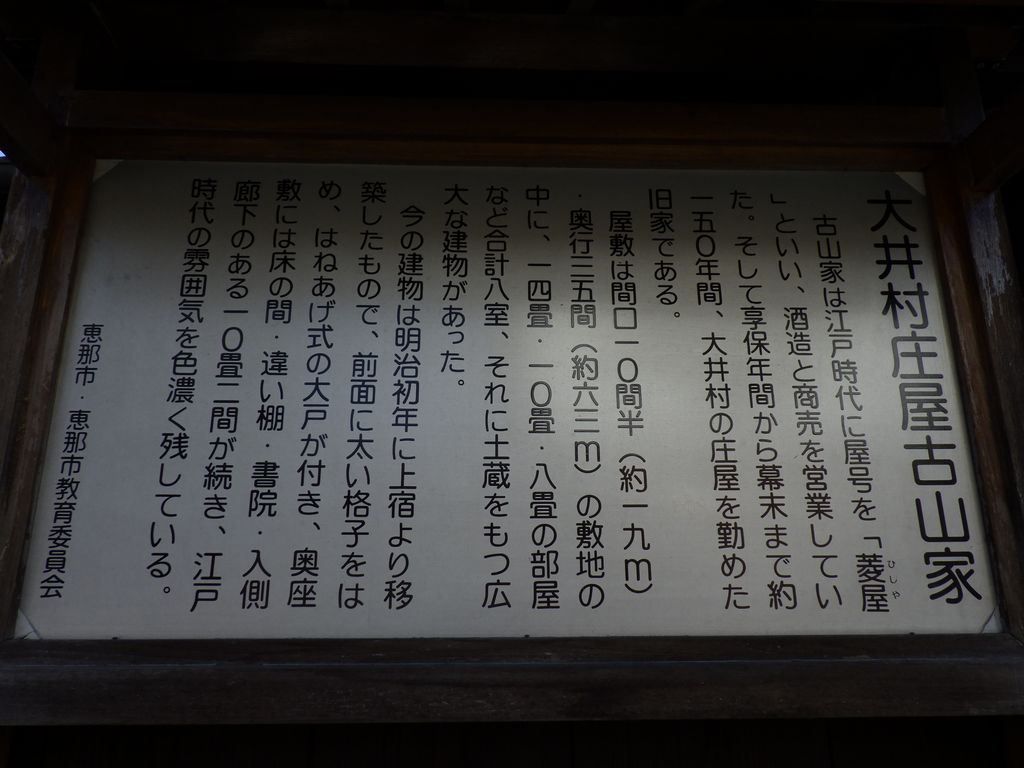 大井村庄屋古山家
古山家は江戸時代に屋号を「菱屋
ひしや
」といい、酒造と商売を営業してい
た。そして享保年間から幕末まで約
一五〇年間、大井村の庄屋を勤めた
旧家である。
屋敷は間口一〇間半（約一九ｍ）
・奥行三五間（約六三ｍ）の敷地の
中に、一四畳・一〇畳・八畳の部屋
など合計八室、それに土蔵をもつ広
大な建物があった。
今の建物は明治初年に上宿より移
築したもので、前面に太い格子をは
め、はねあげ式の大戸が付き、奥座
敷には床の間・違い棚・書院・入側
廊下のある一〇畳二間が続き、江戸
時代の雰囲気を色濃く残している。
恵那市・恵那市教育委員会